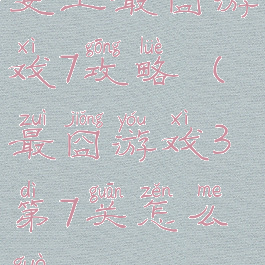 史上最囧游
xì gōng lüè
戏7攻略（
zuì jiǒng yóu xì
最囧游戏3
dì guān zěn me
第7关怎么
guò